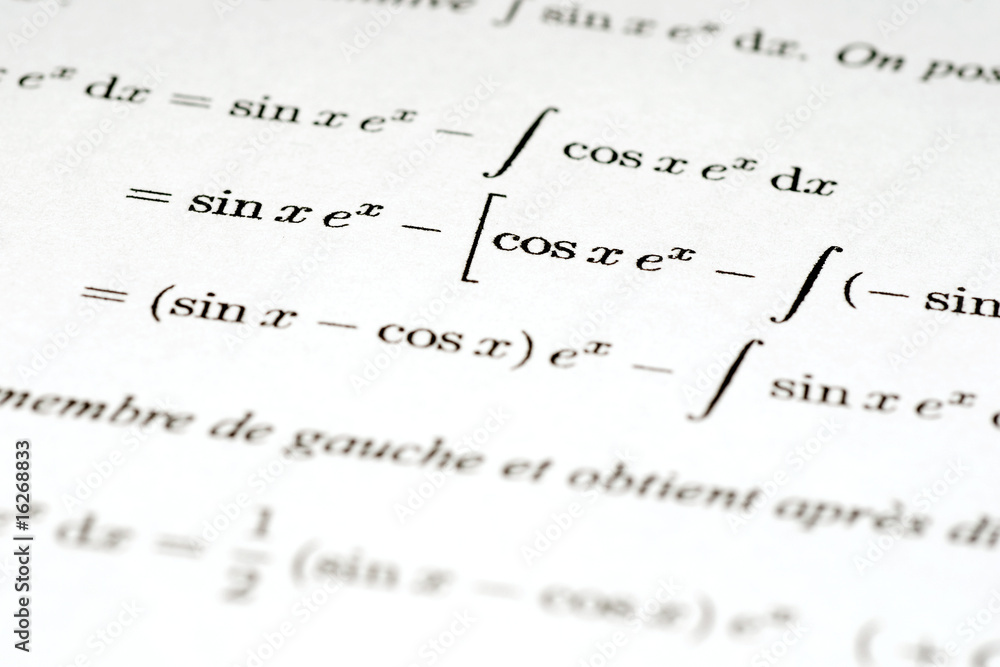 ∫ sin x e^x dx. On pos
e^x dx = sin x e^x − ∫ cos x e^x dx
= sin x e^x − [cos x e^x − ∫ (− sin
= (sin x − cos x) e^x − ∫ sin x e^x
membre de gauche et obtient après di
dx = 1/2 (sin x − cos x) e^x (
Adobe Stock | #16268833